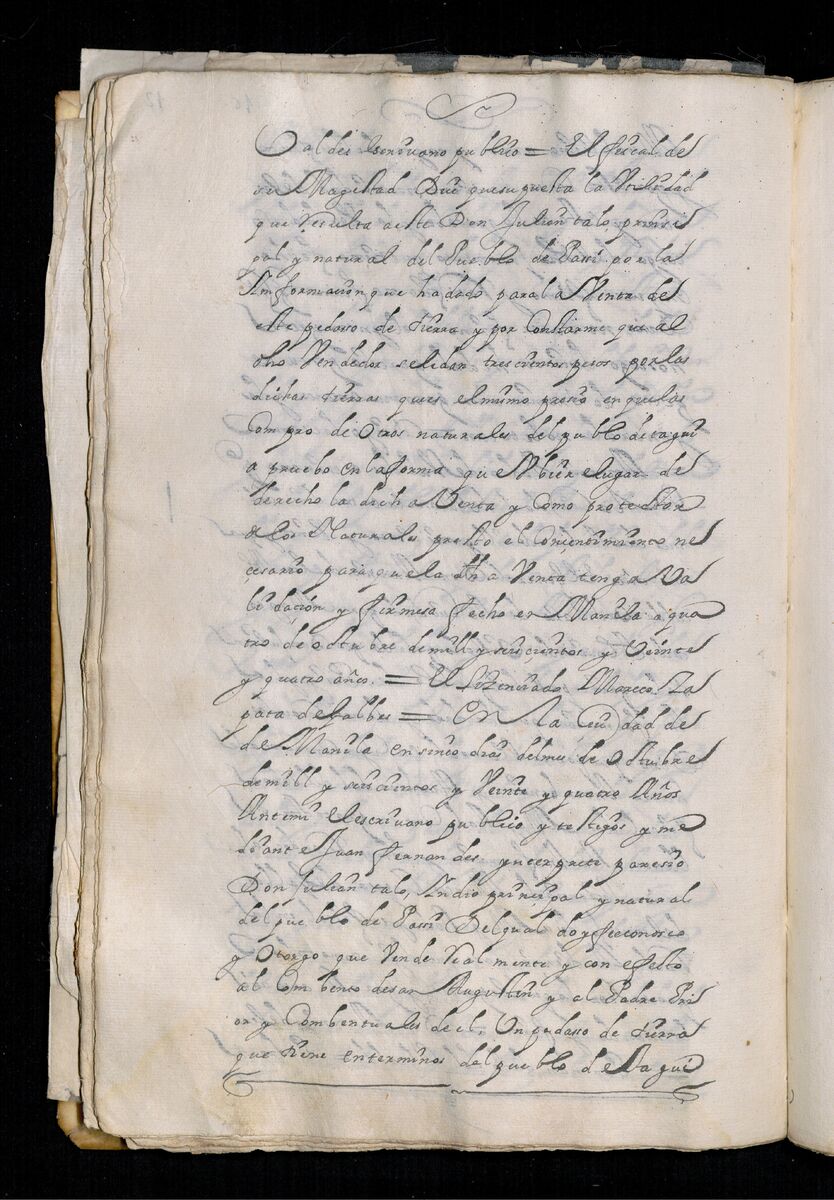 Valdes Escriuano publico = El fiscal de
su Magestad Dize que supuesta la Vtilidad
que Resulta a este Don Julian talo, prinsi
pal y natural del Pueblo de Passi por la
Informacion que ha dado para la Venta de
este pedaso de tierra y por Constarme que al
dho Vendedor se le dan trescientos pesos por las
dichas tierras que es el mismo presio en que las
Compro de Otros naturales del pueblo de tagui
a prueba en la forma que Vbiere lugar de
derecho la dicha Venta y Como protector
de los Naturales presto el Consentimiento ne
cesario para que la dha Venta tenga Va
lidación y firmesa fecho en Manila a qua
tro de octubre de mill y seiscientos y Veinte
y quatro años. = El lizenciado Marcos Za
pata de Galbes = En la Ciudad de
de Manila en sinco dias del mes de Octubre
de mill y seiscientos y Veinte y quatro Años
Antemi el escriuano publico y testigos y me
diante Juan Fernandes ynterprete paresio
Don Julian talo, Indio principal y natural
del pueblo de Passi Del qual doy fee conosco
y Otorgo que Vende Real mente y con efesto
al Combento de san Augustin y al Padre Pri
or y Combentuales de el, Un pedasso de tierra
que tiene en terminos del pueblo de tagui